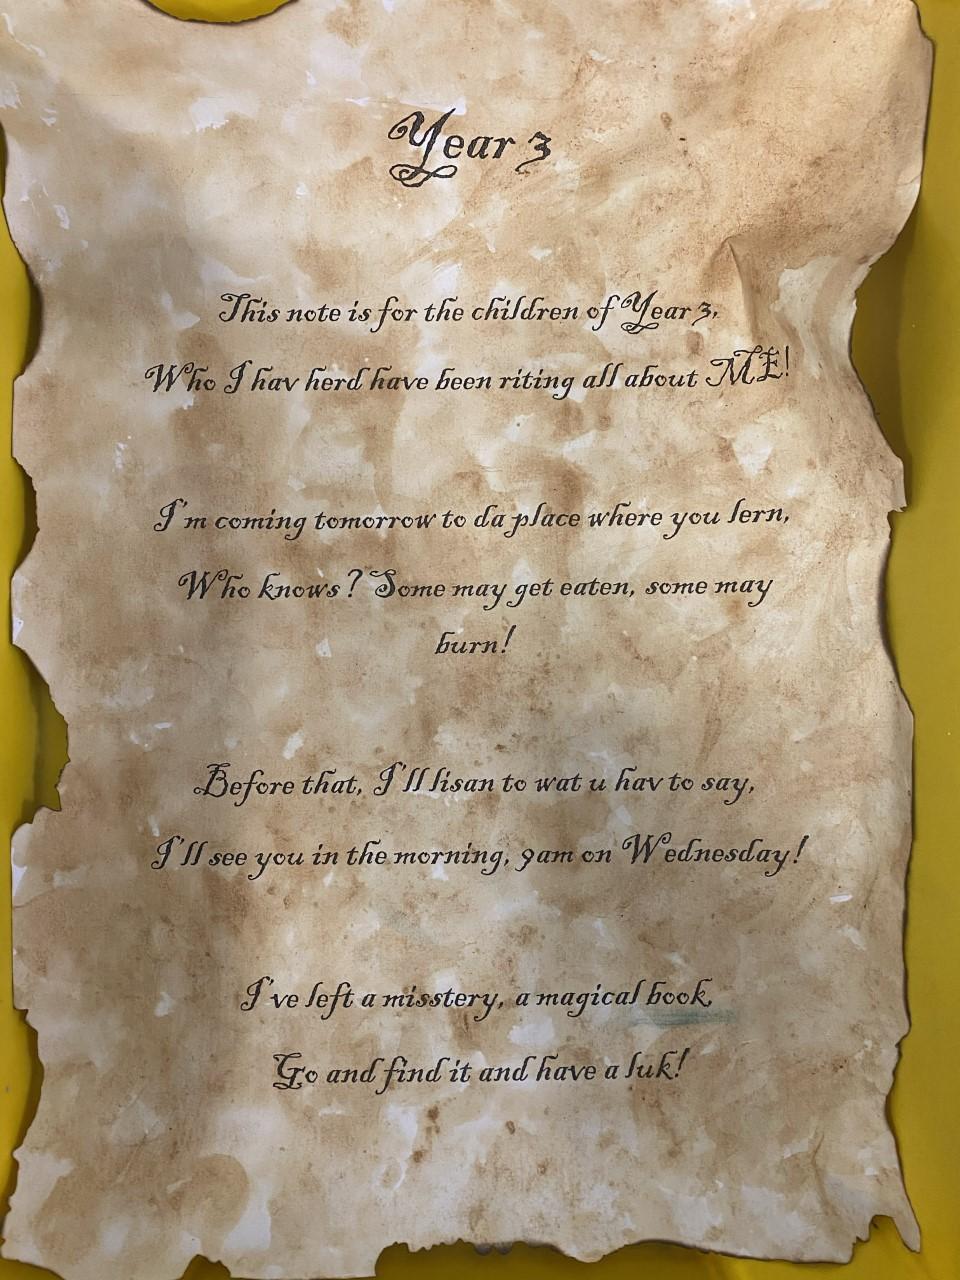 Year 3
This note is for the children of Year 3,
Who I hav herd have been riting all about ME!
I'm coming tomorrow to da place where you lern,
Who knows? Some may get eaten, some may
burn!
Before that, I'll lisan to wat u hav to say,
I'll see you in the morning, 9am on Wednesday!
I've left a misstery, a magical book,
Go and find it and have a luk!